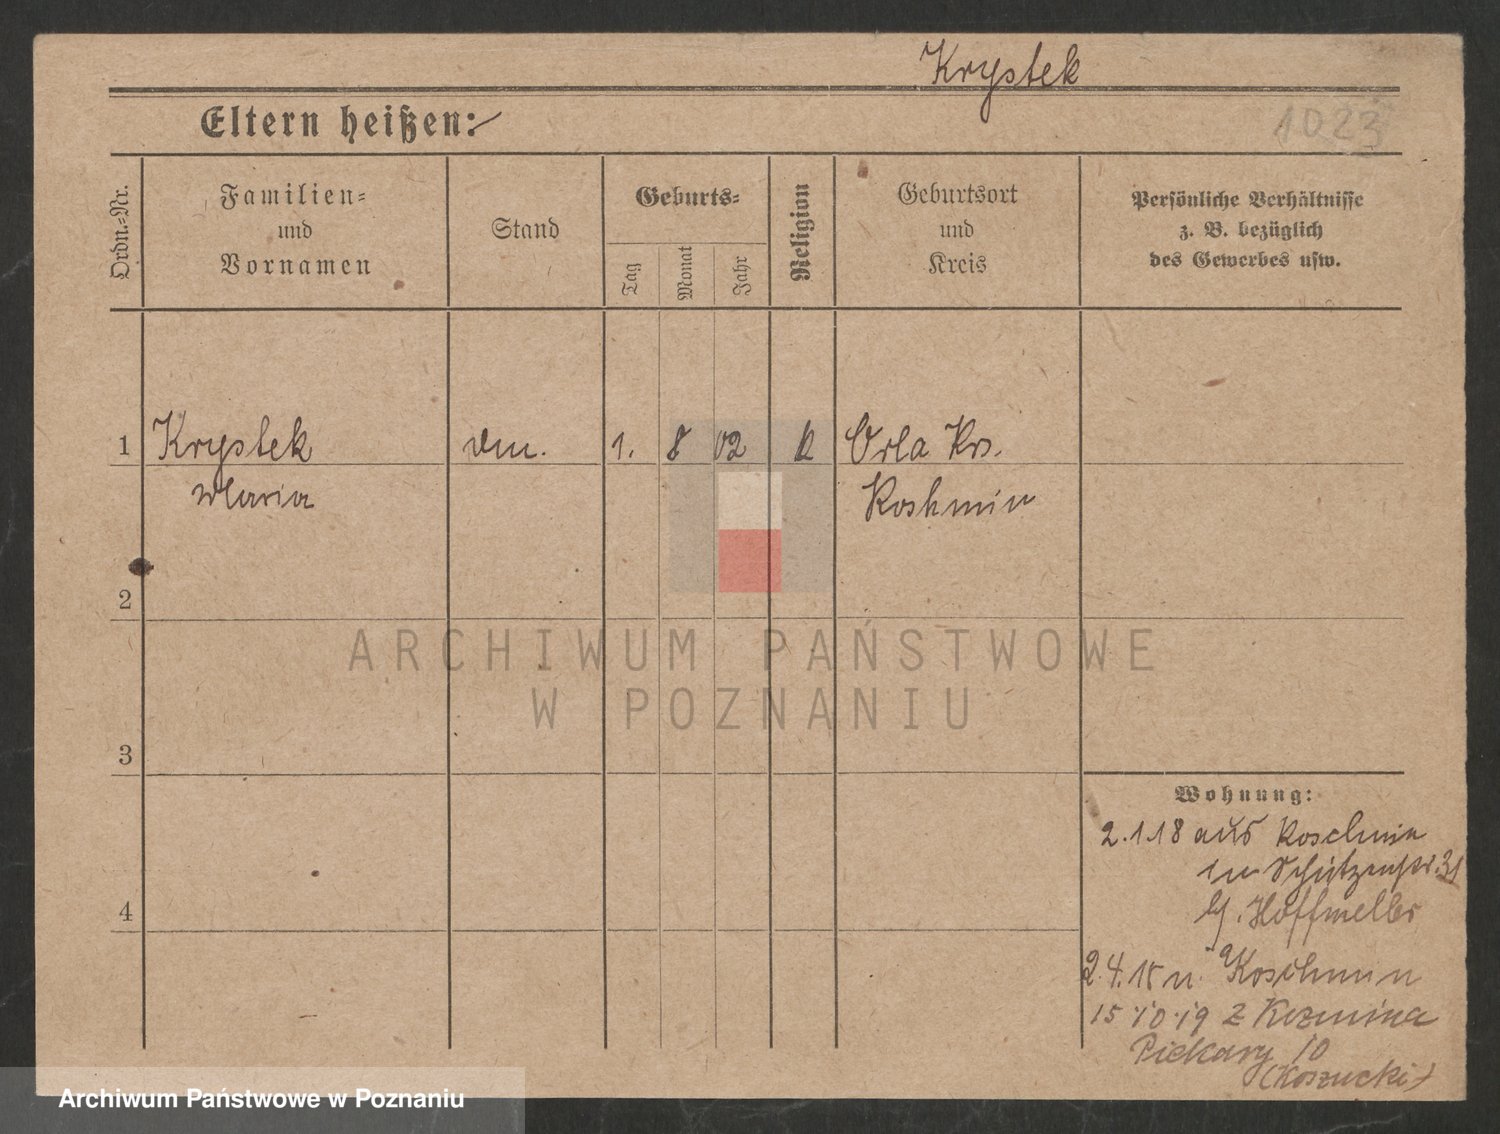 Krystek
1023
Eltern heißen:
Ordn.-Nr.
Familien-
und
Vornamen
Stand
Geburts-
Tag
Monat
Jahr
Religion
Geburtsort
und
Kreis
Persönliche Verhältnisse
z. B. bezüglich
des Gewerbes usw.
1 Krystek 1. 8 02 k Orla Krs.
Maria Koshmin
2
ARCHIWUM PAŃSTWOWE
W POZNANIU
3
Wohnung:
2.1.18 aus Koschmin
in Schützenstr. 31
Koschmin
4
15.10.19 z Kozmina
Piekary 10
(Koszucki)
Archiwum Państwowe w Poznaniu